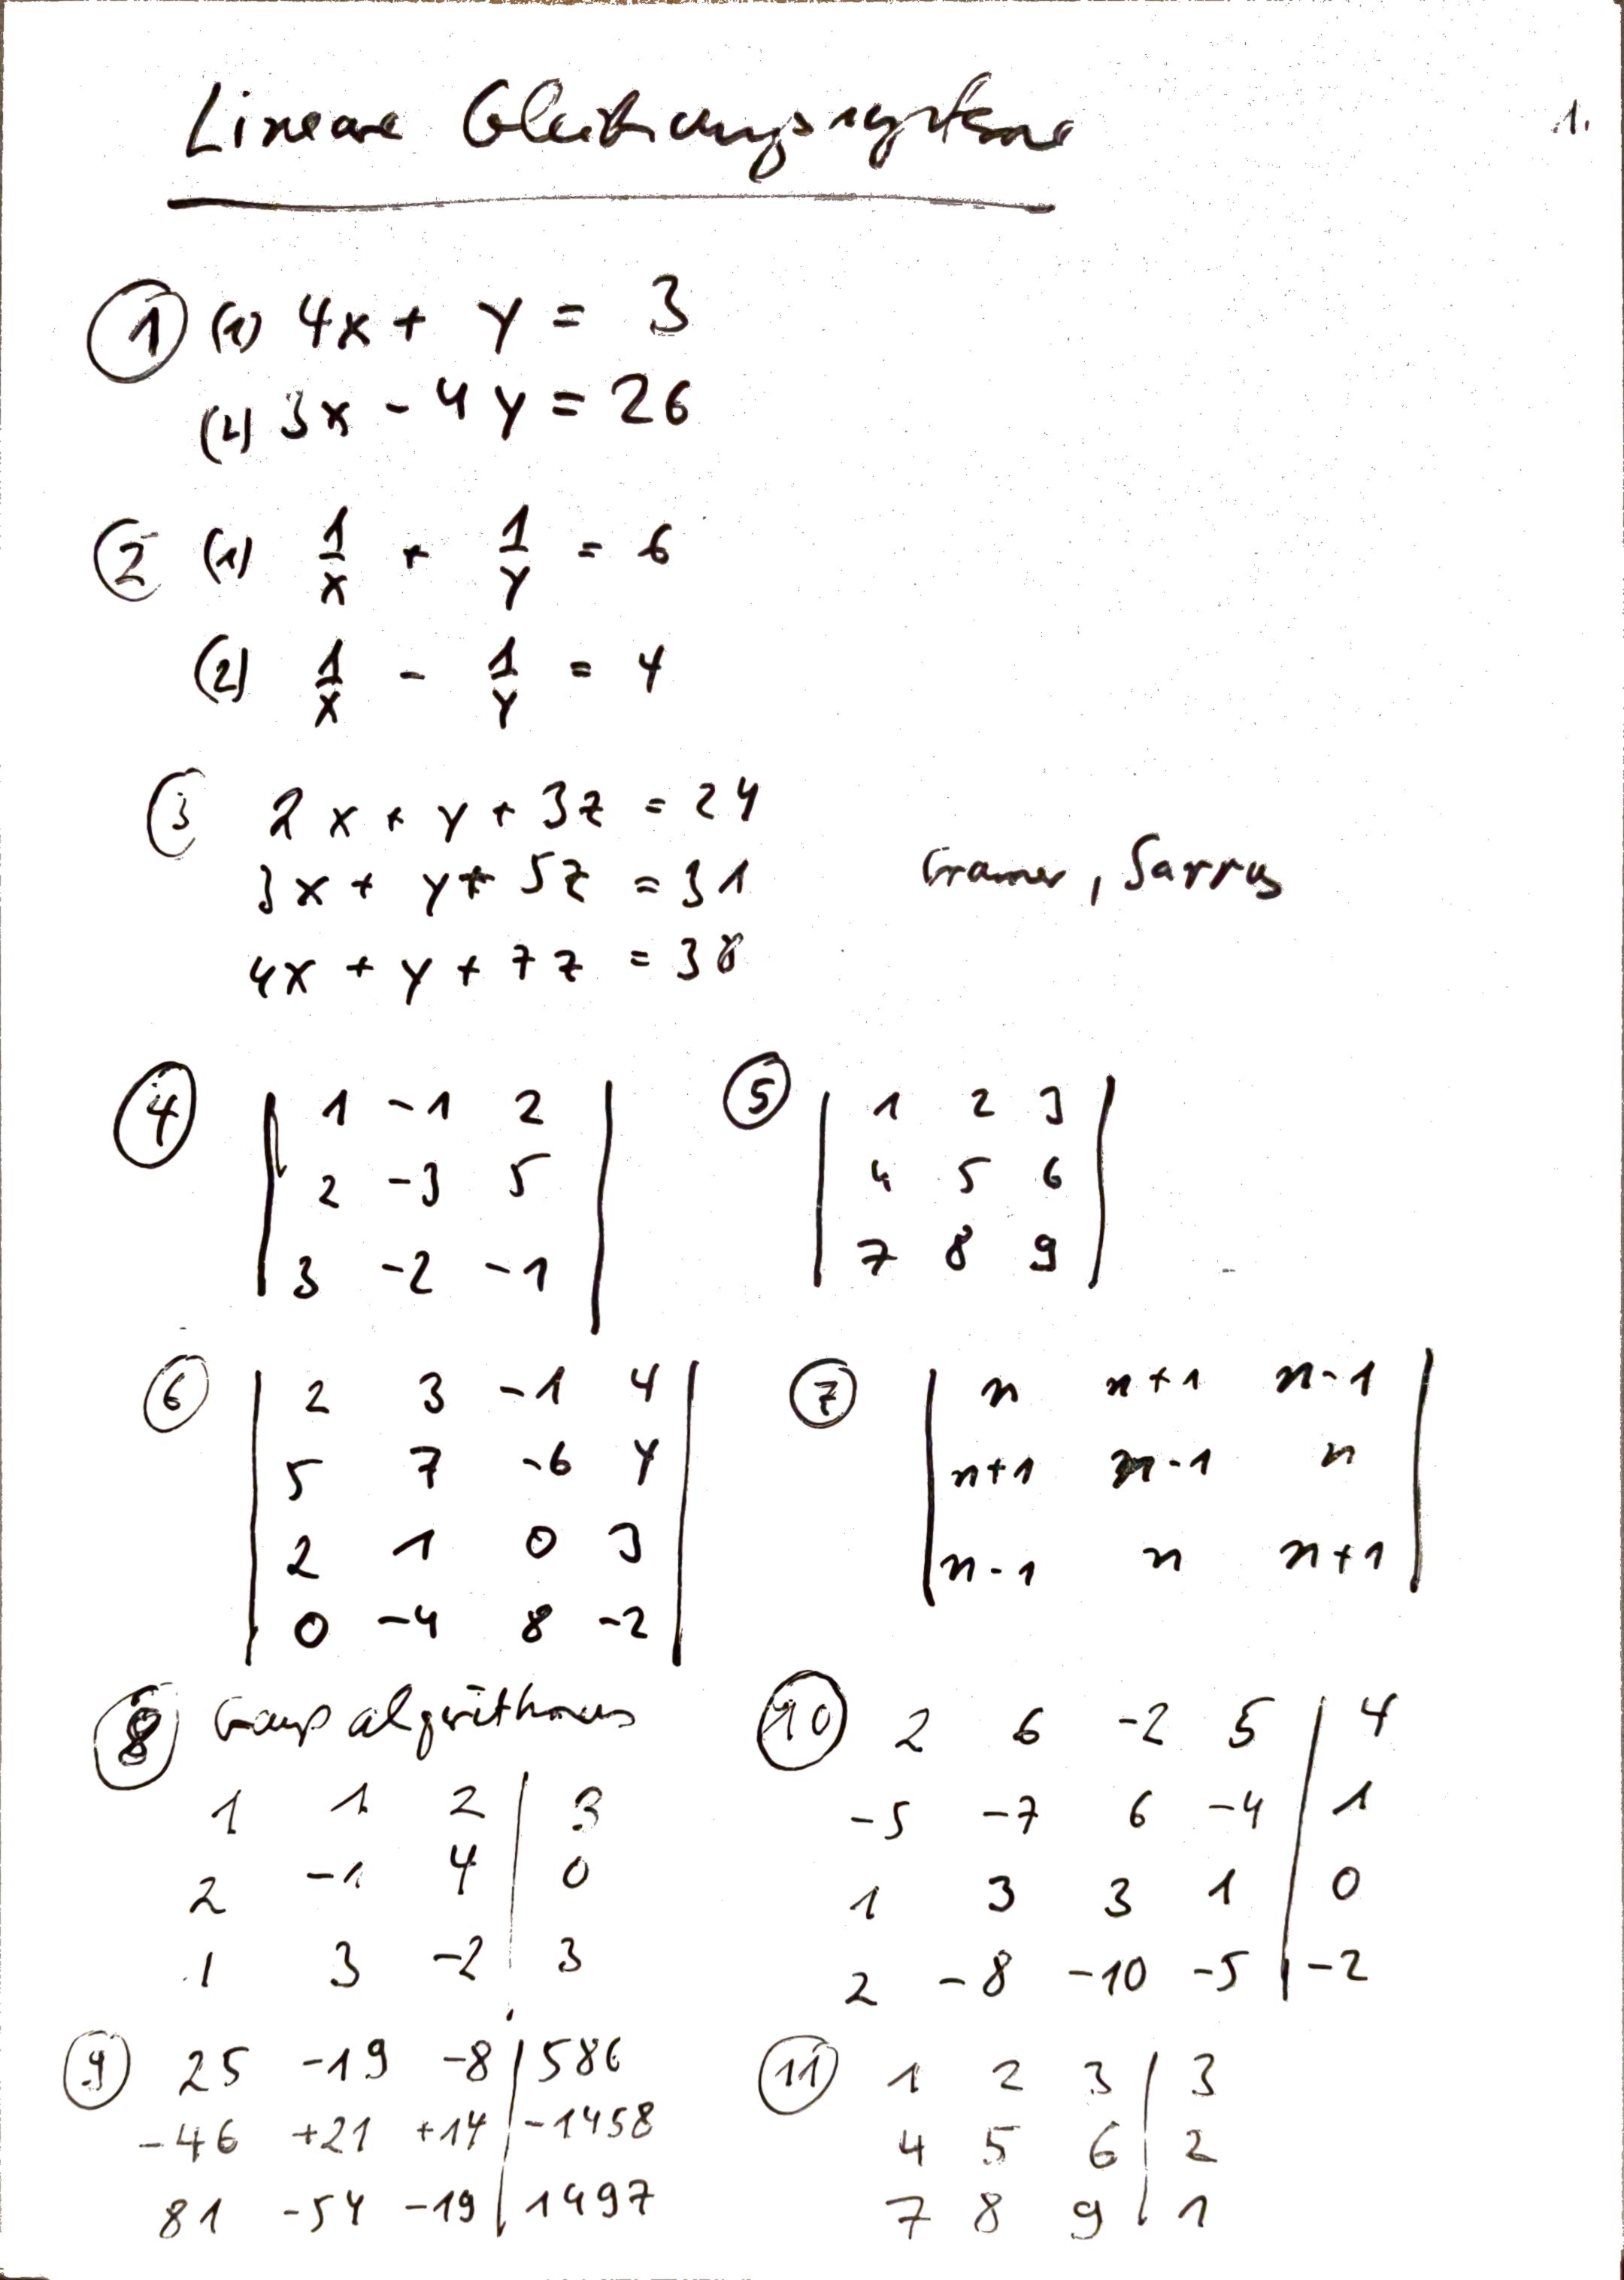 Lineare Gleichungssysteme
1.
① (1) 4x + y = 3
(2) 3x - 4y = 26
② (1) 1/x + 1/y = 6
(2) 1/x - 1/y = 4
③ 2x + y + 3z = 24
3x + y + 5z = 31
4x + y + 7z = 38
Cramer, Sarrus
④ | 1 -1 2 |
| 2 -3 5 |
| 3 -2 -1 |
⑤ | 1 2 3 |
| 4 5 6 |
| 7 8 9 |
⑥ | 2 3 -1 4 |
| 5 7 -6 4 |
| 2 1 0 3 |
| 0 -4 8 -2 |
⑦ | n n+1 n-1 |
| n+1 n-1 n |
| n-1 n n+1 |
⑧ Gaußalgorithmus
1 1 2 | 3
2 -1 4 | 0
1 3 -2 | 3
⑨ 25 -19 -8 | 586
-46 +21 +14 | -1458
81 -54 -19 | 1497
⑩ 2 6 -2 5 | 4
-5 -7 6 -4 | 1
1 3 3 1 | 0
2 -8 -10 -5 | -2
⑪ 1 2 3 | 3
4 5 6 | 2
7 8 9 | 1